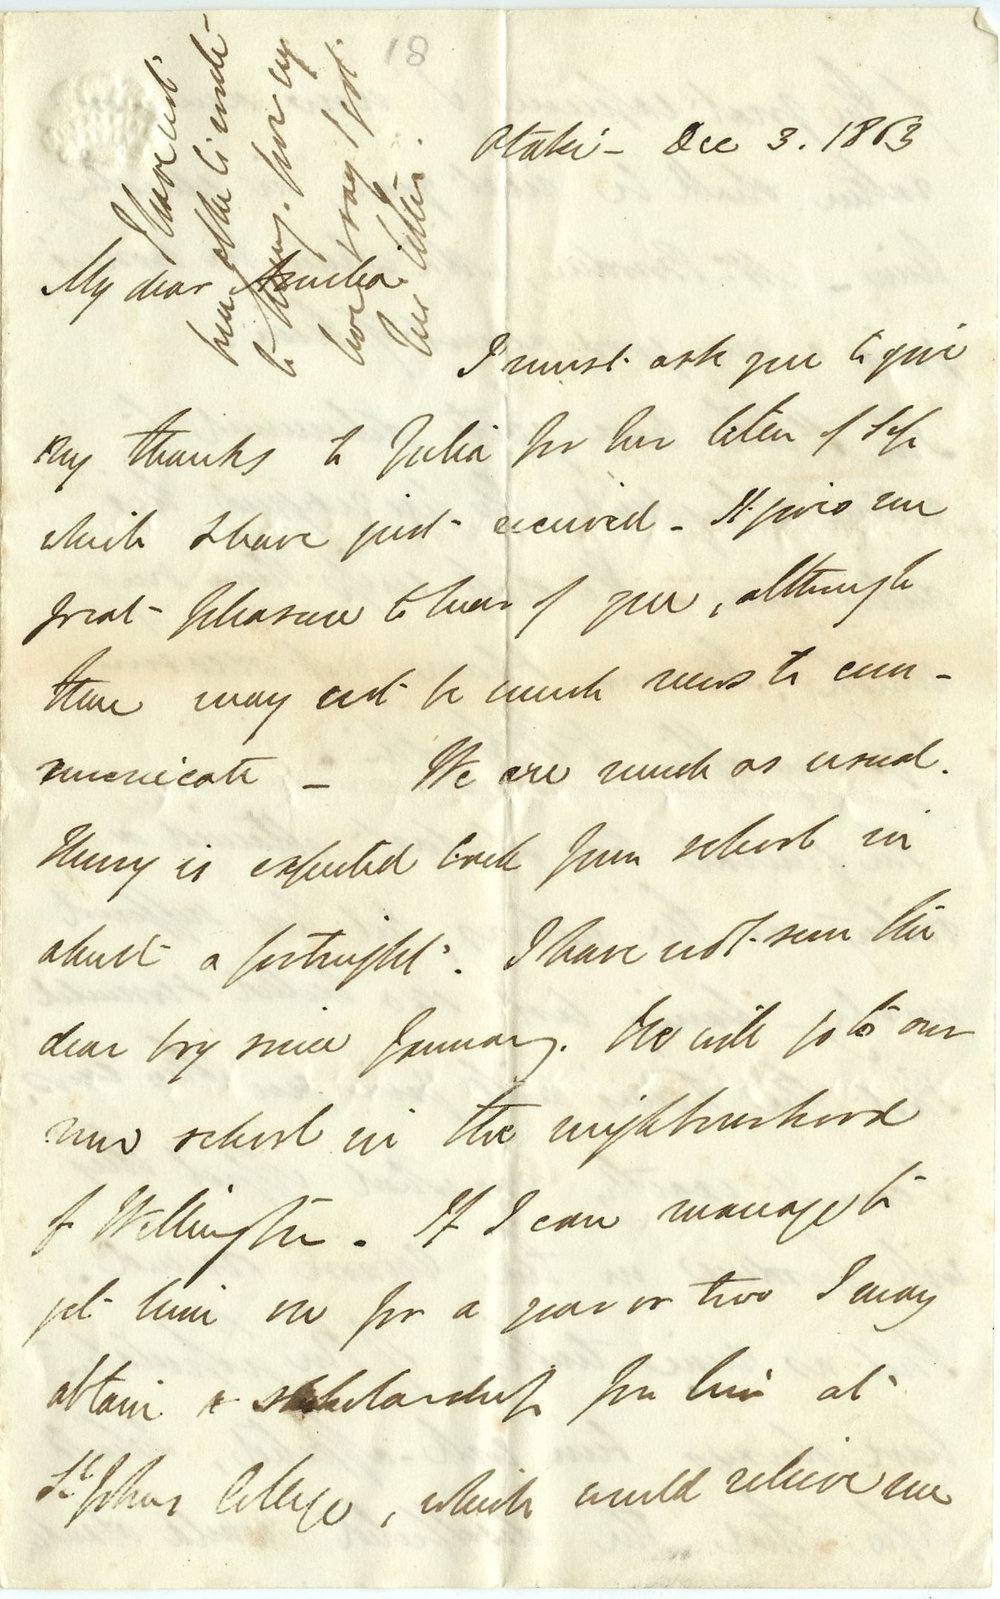 18
Otaki - Dec 3. 1863
My dear Amelia
I must ask you to give
my thanks to Julia for her letter of Sep
which I have just received - It gives me
great pleasure to hear of you, although
there may not be much news to com-
municate - We are much as usual.
Henry is expected back from school in
about a fortnight. I have not seen the
dear boy since January. He will go to our
new school in the neighbourhood
of Wellington. If I can manage to
get him on for a year or two I may
obtain a scholarship for him at
St Johns College, which would relieve me
I have not
another minute
to Henry. for
way I got
her letter.